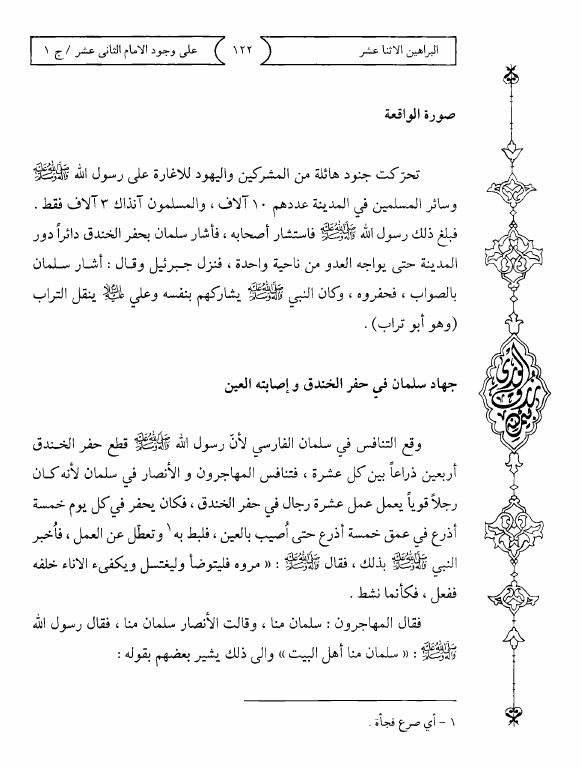 البراهين الاثنا عشر
١٢٢
على وجود الامام الثانى عشر / ج ١
صورة الواقعة
تحرّكت جنود هائلة من المشركين واليهود للاغارة على رسول الله ﷺ
وسائر المسلمين في المدينة عددهم ١٠ آلاف ، والمسلمون آنذاك ٣ آلاف فقط .
فبلغ ذلك رسول الله ﷺ فاستشار أصحابه ، فأشار سلمان بحفر الخندق دائراً دور
المدينة حتى يواجه العدو من ناحية واحدة ، فنزل جبرئيل وقال : أشار سلمان
بالصواب ، فحفروه ، وكان النبي ﷺ يشاركهم بنفسه وعلي ينقل التراب
(وهو أبو تراب) .
جهاد سلمان في حفر الخندق و إصابته العين
وقع التنافس في سلمان الفارسي لأنّ رسول الله ﷺ قطع حفر الخندق
أربعين ذراعاً بين كل عشرة ، فتنافس المهاجرون و الأنصار في سلمان لأنه كان
رجلاً قوياً يعمل عمل عشرة رجال في حفر الخندق ، فكان يحفر في كل يوم خمسة
أذرع في عمق خمسة أذرع حتى أُصيب بالعين ، فلبط به١ وتعطّل عن العمل ، فأُخبر
النبي ﷺ بذلك ، فقال ﷺ : « مروه فليتوضأ وليغتسل ويكفىء الاناء خلفه
ففعل ، فكأنما نشط .
فقال المهاجرون : سلمان منا ، وقالت الأنصار سلمان منا ، فقال رسول الله
ﷺ : « سلمان منا أهل البيت » والى ذلك يشير بعضهم بقوله :
١ - أي صرع فجأة .